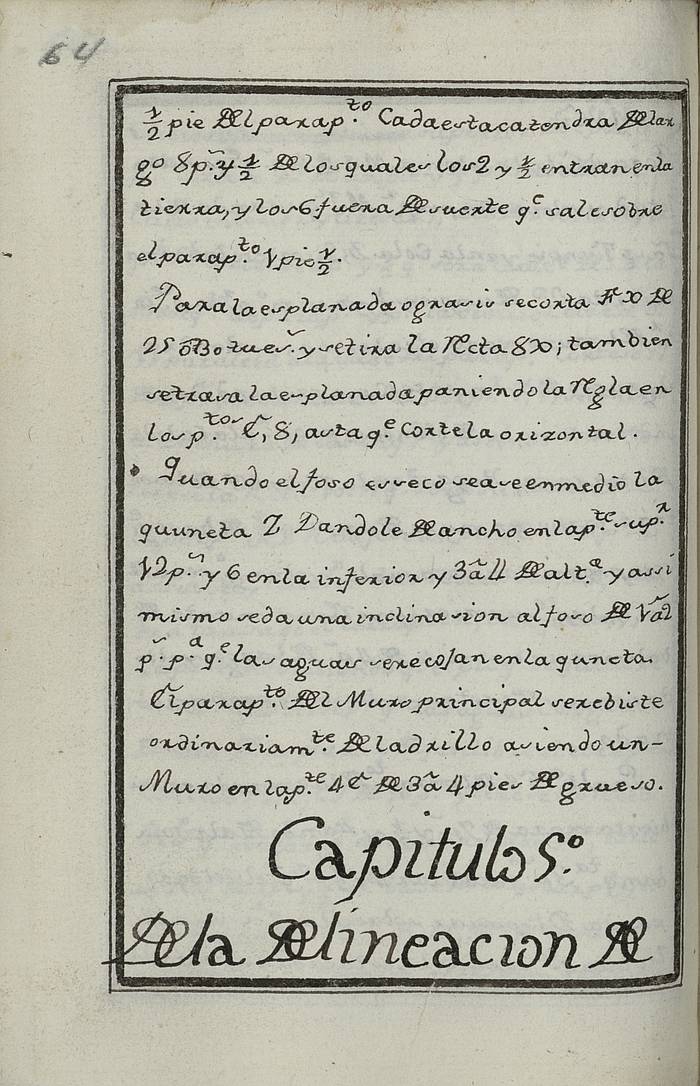 64
1/2 pie Del parap.to Cada estaca tendra De lar
go 8 p.s y 1/2 De los quales los 2 y 1/2 entran en la
tierra, y los 6 fuera De suerte q.e sale sobre
el parap.to 1 pie 1/2.
Para la esplanada o grasis se corta F X De
25 ō Bo tues. y se tira la Recta 8 X; tambien
se trasa la esplanada paniendo la Regla en
los p.tos C, 8, asta q.e corte la orizontal.
Quando el foso es seco se ase en medio la
quuneta Z Dandole De ancho en la p.te sup.r
12 p.s y 6 en la inferior y 3 ã 4 De alt.a y assi
mismo se da una inclinasion al foso De 1 ã 2
p.s p.a q.e las aguas se recojan en la quneta.
El parap.to Del Muro principal se rebiste
ordinariam.te De ladrillo asiendo un-
Muro en la p.te 4 C De 3 ã 4 pies De grueso.
Capitulo 5.o
De la Delineacion De